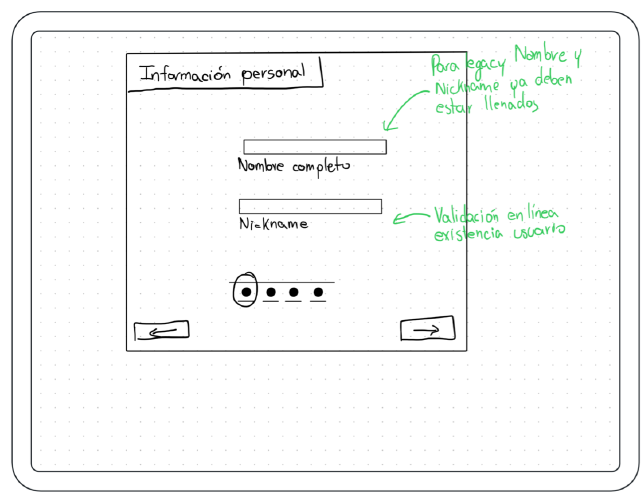 Información personal
Para legacy Nombre y
Nickname ya deben
estar llenados
Nombre completo
Nickname
Validación en línea
existencia usuario